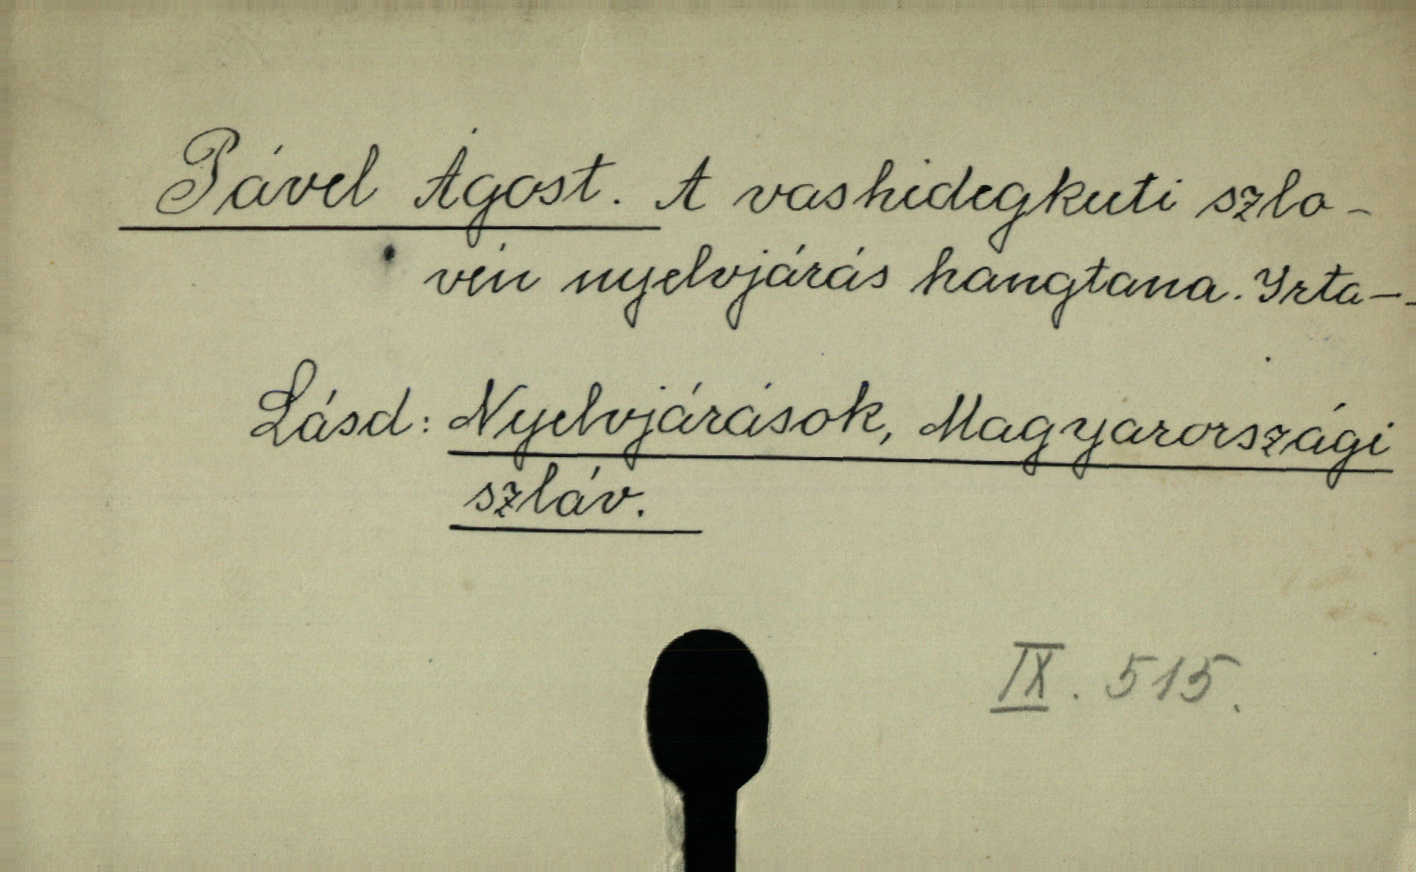 Pável Ágost. A vashidegkuti szlo-
vén nyelvjárás hangtana. Irta—-
Lásd: Nyelvjárások, Magyarországi
szláv.
IX. 515.